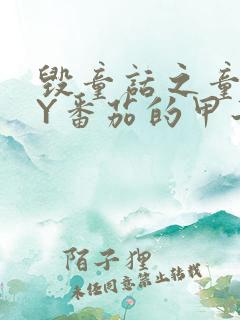 毁童话之童
Y番茄的甲
陌子狸
未经同意禁止转载